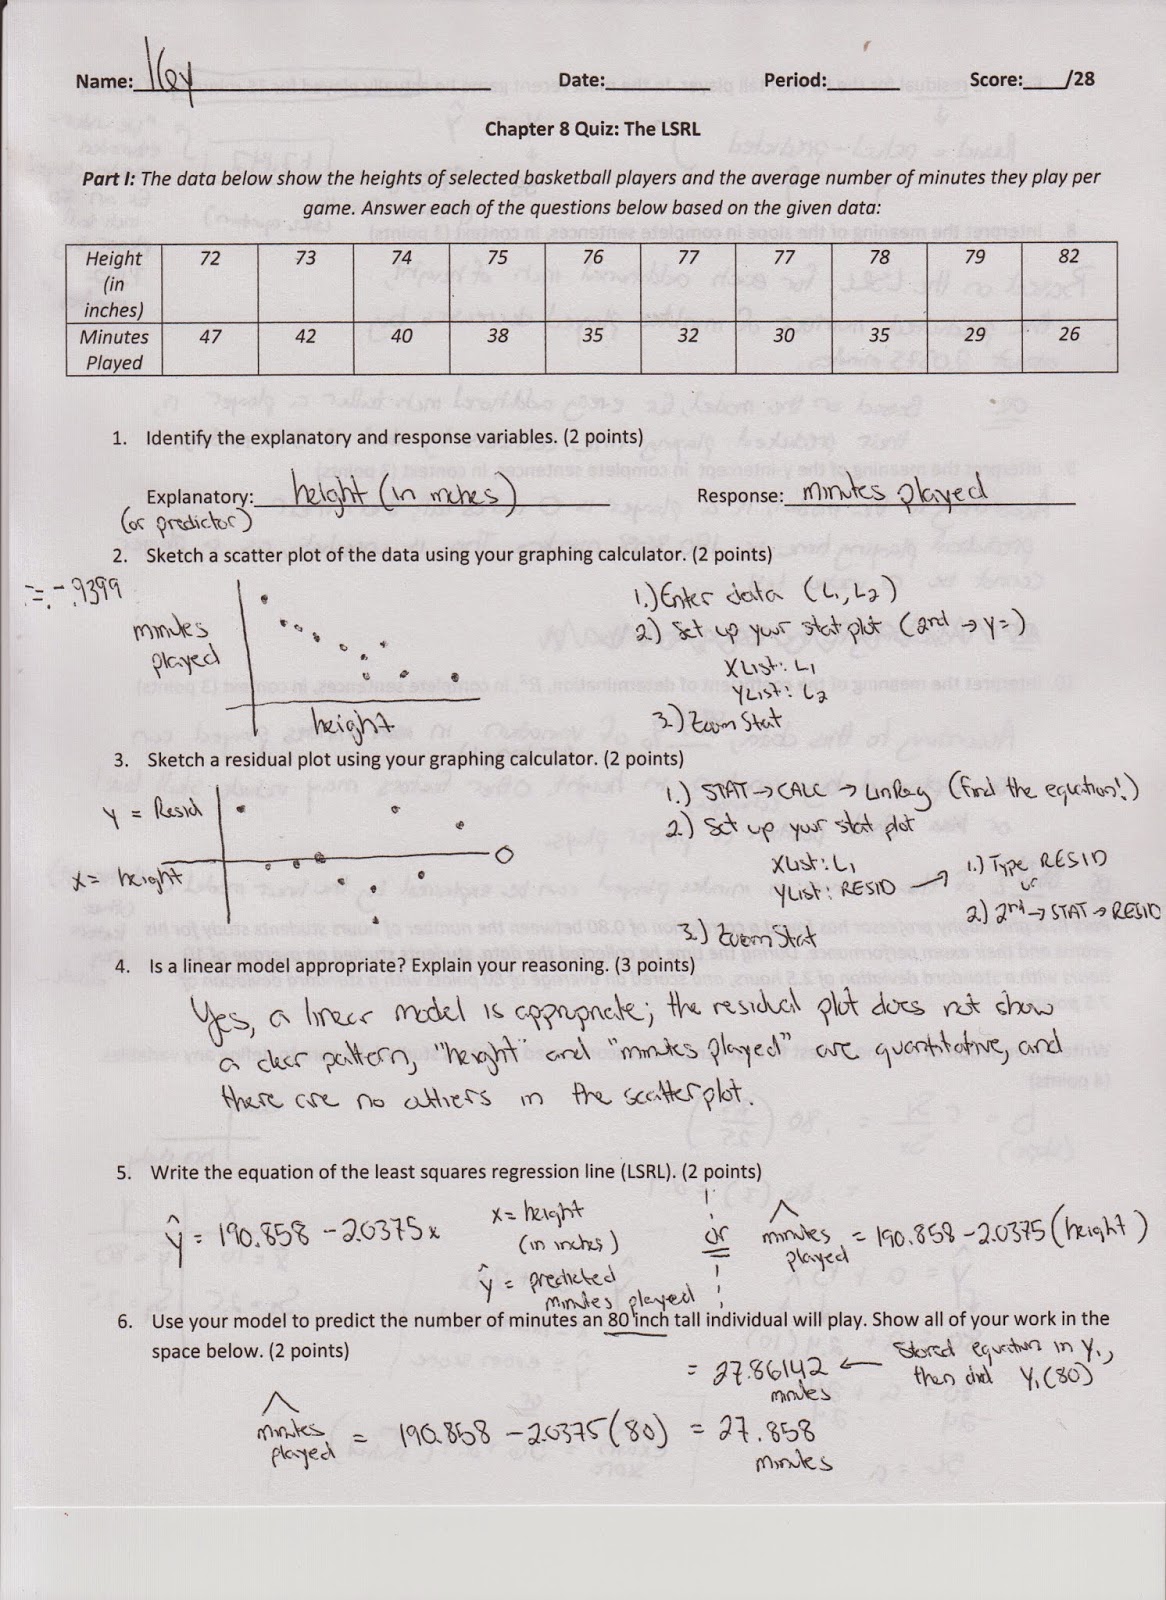 Name: Key Date: Period: Score: /28
Chapter 8 Quiz: The LSRL
Part I: The data below show the heights of selected basketball players and the average number of minutes they play per
game. Answer each of the questions below based on the given data:
Height (in inches) 72 73 74 75 76 77 77 78 79 82
Minutes Played 47 42 40 38 35 32 30 35 29 26
1. Identify the explanatory and response variables. (2 points)
Explanatory: height (in inches) Response: minutes played
(or predictor)
2. Sketch a scatter plot of the data using your graphing calculator. (2 points)
= -.9399
minutes
played
height
1.) Enter data (L1, L2)
2) Set up your stat plot (2nd → y=)
XList: L1
YList: L2
3.) Zoom Stat
3. Sketch a residual plot using your graphing calculator. (2 points)
y = Resid
x = height
0
1.) STAT → CALC → LinReg (find the equation!)
2.) Set up your stat plot
XList: L1
YList: RESID → 1.) Type RESID
or
2.) 2nd → STAT → RESID
3.) ZoomStat
4. Is a linear model appropriate? Explain your reasoning. (3 points)
Yes, a linear model is appropriate; the residual plot does not show
a clear pattern, "height" and "minutes played" are quantitative, and
there are no outliers in the scatterplot.
5. Write the equation of the least squares regression line (LSRL). (2 points)
ŷ = 190.858 - 2.0375x
x = height
(in inches)
ŷ = predicted
minutes played
or
minutes played = 190.858 - 2.0375 (height)
6. Use your model to predict the number of minutes an 80 inch tall individual will play. Show all of your work in the
space below. (2 points)
= 27.86142 minutes ← Stored equation in Y1,
then did Y1(80)
minutes played = 190.858 - 2.0375(80) = 27.858
minutes